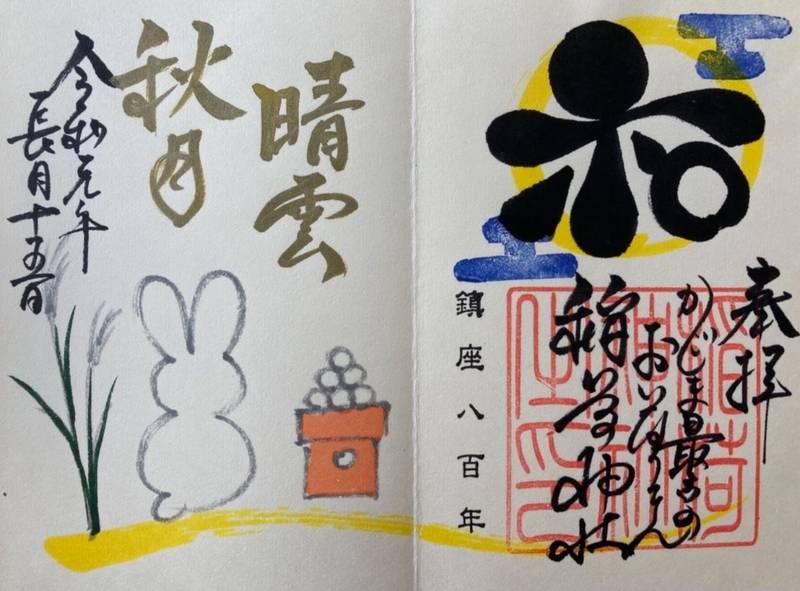 奉拝
かごしま最古の
おいなりさん
稲荷神社
稲荷
神社
之印
鎮座八百年
晴雲
秋月
令和元年
長月十五日